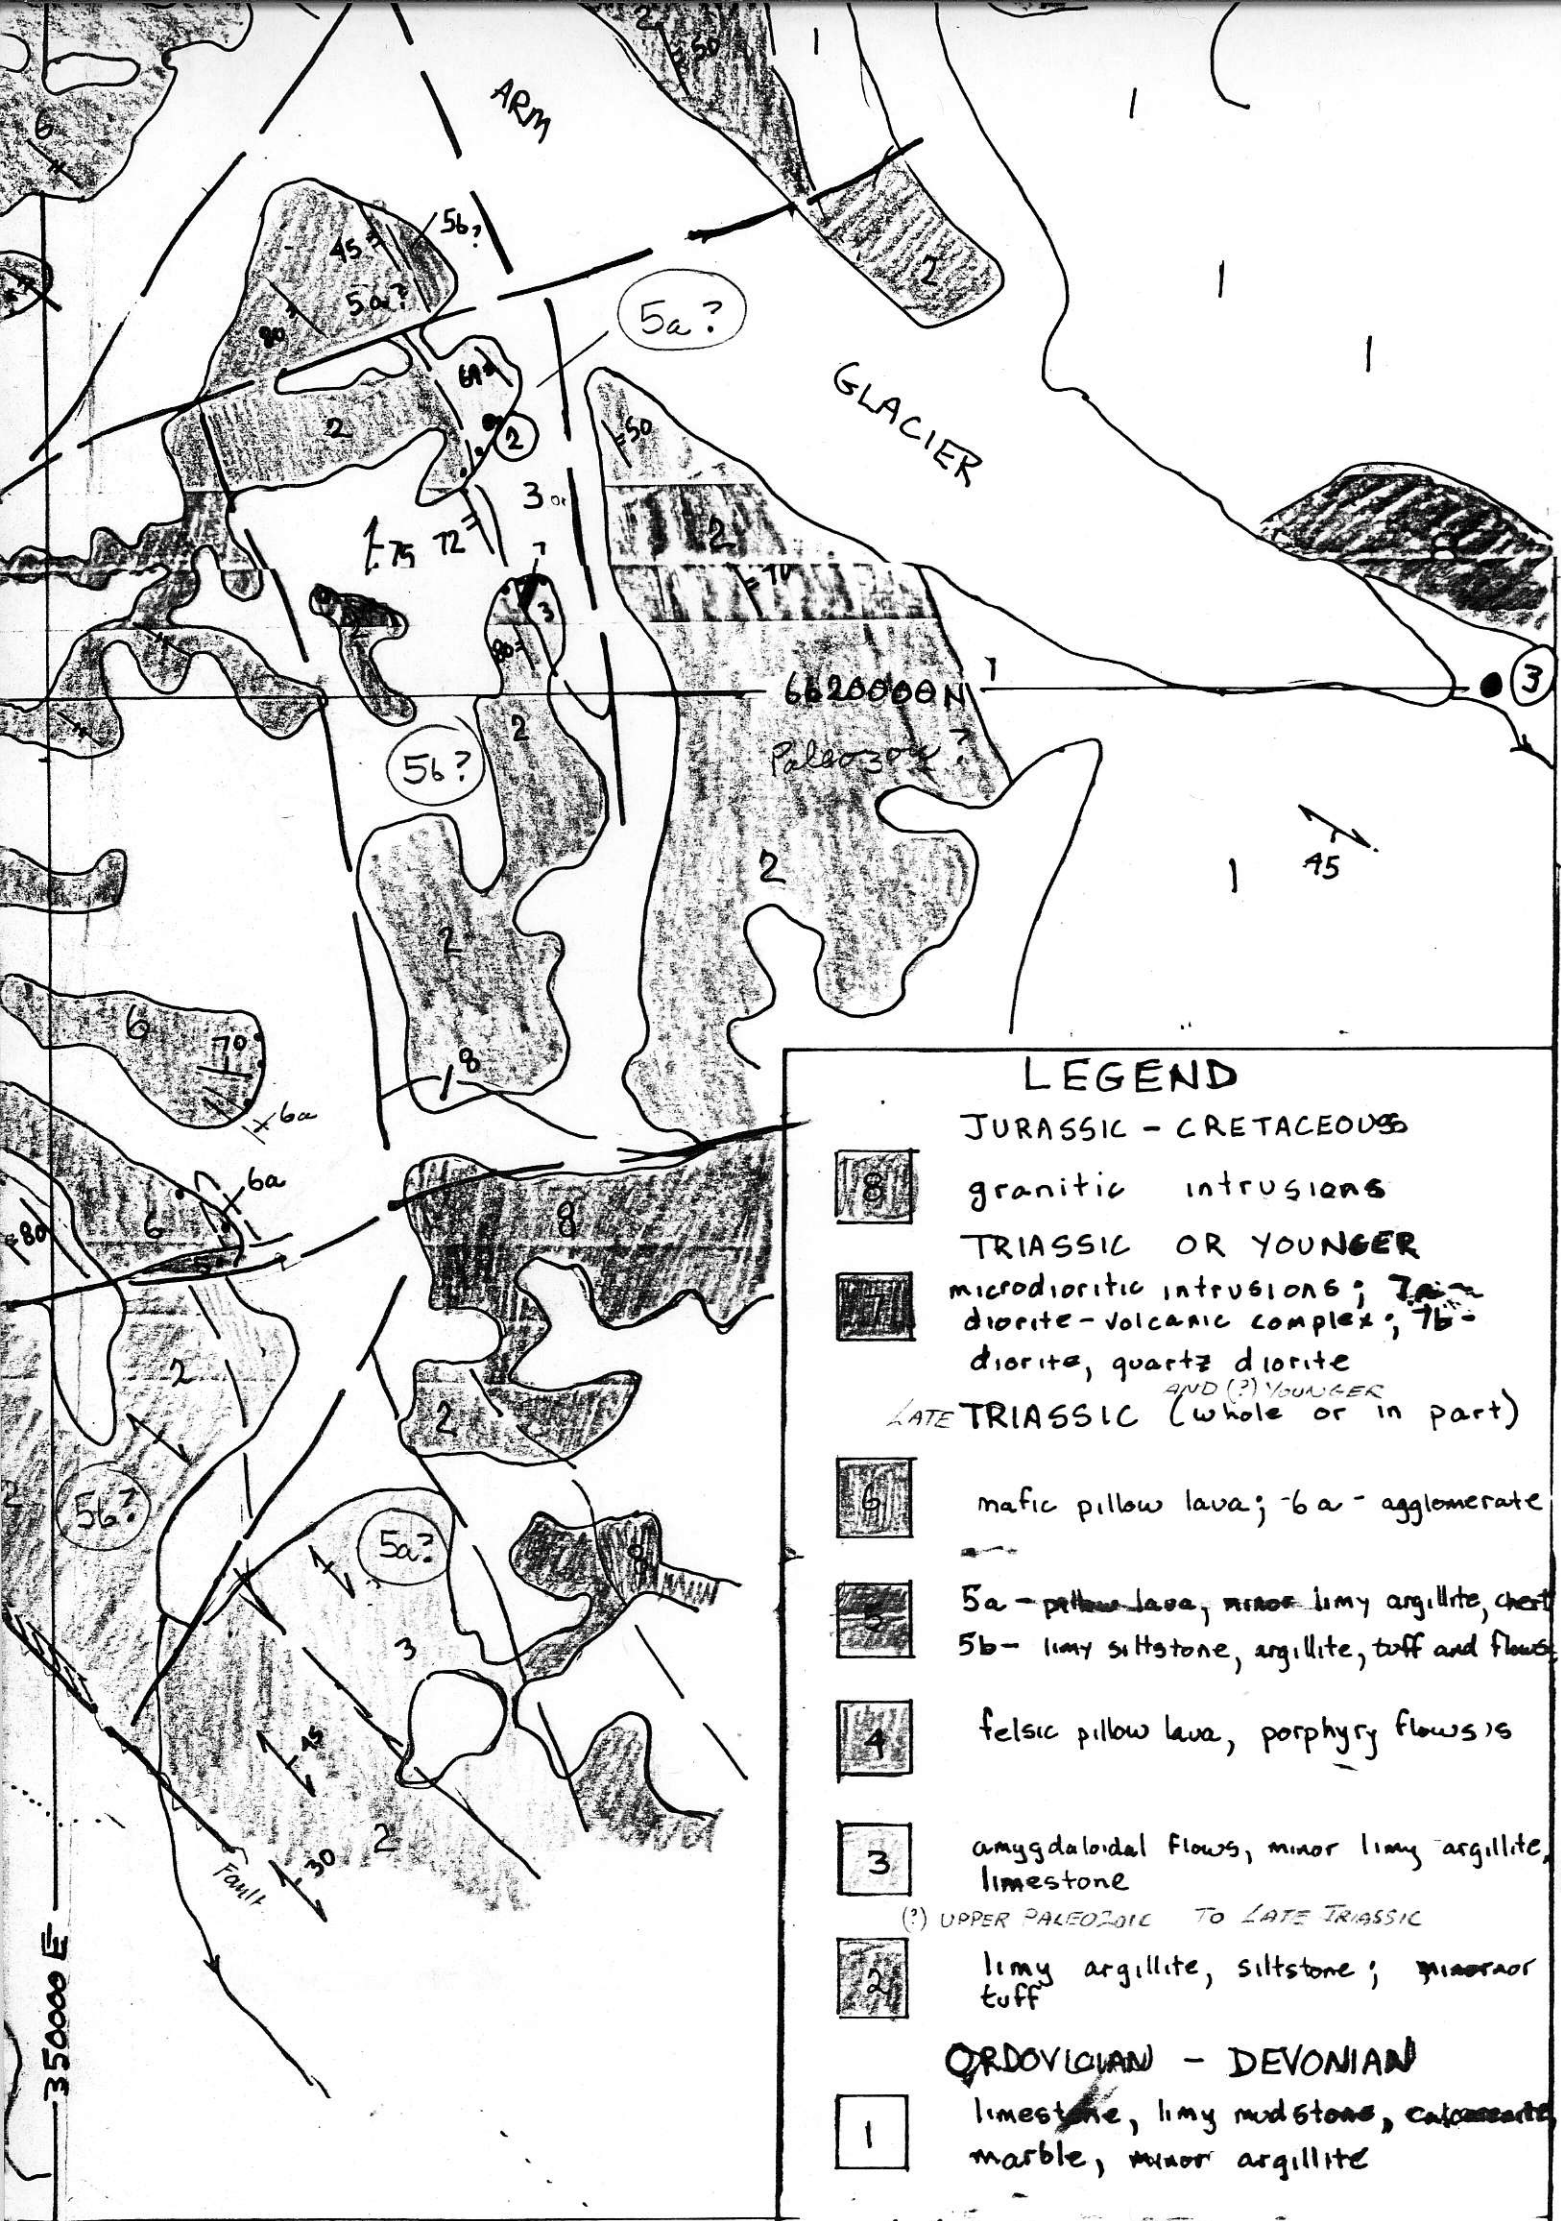 2
50
1
ARM
1
6
2
45
5b?
5a?
80
1
5a?
1
69
2
2
GLACIER
50
3 or
2
75
72
7
70
3
2
80
8
1
6620000N
3
2
5b?
Paleozoic?
2
1
45
2
6
70
8
6a
6a
6
80
5
8
2
2
5b?
2
5a?
8
3
45
2
30
Fault
350000 E
LEGEND
JURASSIC - CRETACEOUS
8
granitic intrusions
TRIASSIC OR YOUNGER
7
microdioritic intrusions; 7a -
diorite-volcanic complex; 7b -
diorite, quartz diorite
AND (?) YOUNGER
LATE TRIASSIC (whole or in part)
6
mafic pillow lava; 6a - agglomerate
5
5a - pillow lava, minor limy argillite, chert
5b - limy siltstone, argillite, tuff and flows
4
felsic pillow lava, porphyry flows
3
amygdaloidal flows, minor limy argillite,
limestone
(?) UPPER PALEOZOIC TO LATE TRIASSIC
2
limy argillite, siltstone; minor
tuff
ORDOVICIAN - DEVONIAN
1
limestone, limy mudstone,
marble, minor argillite